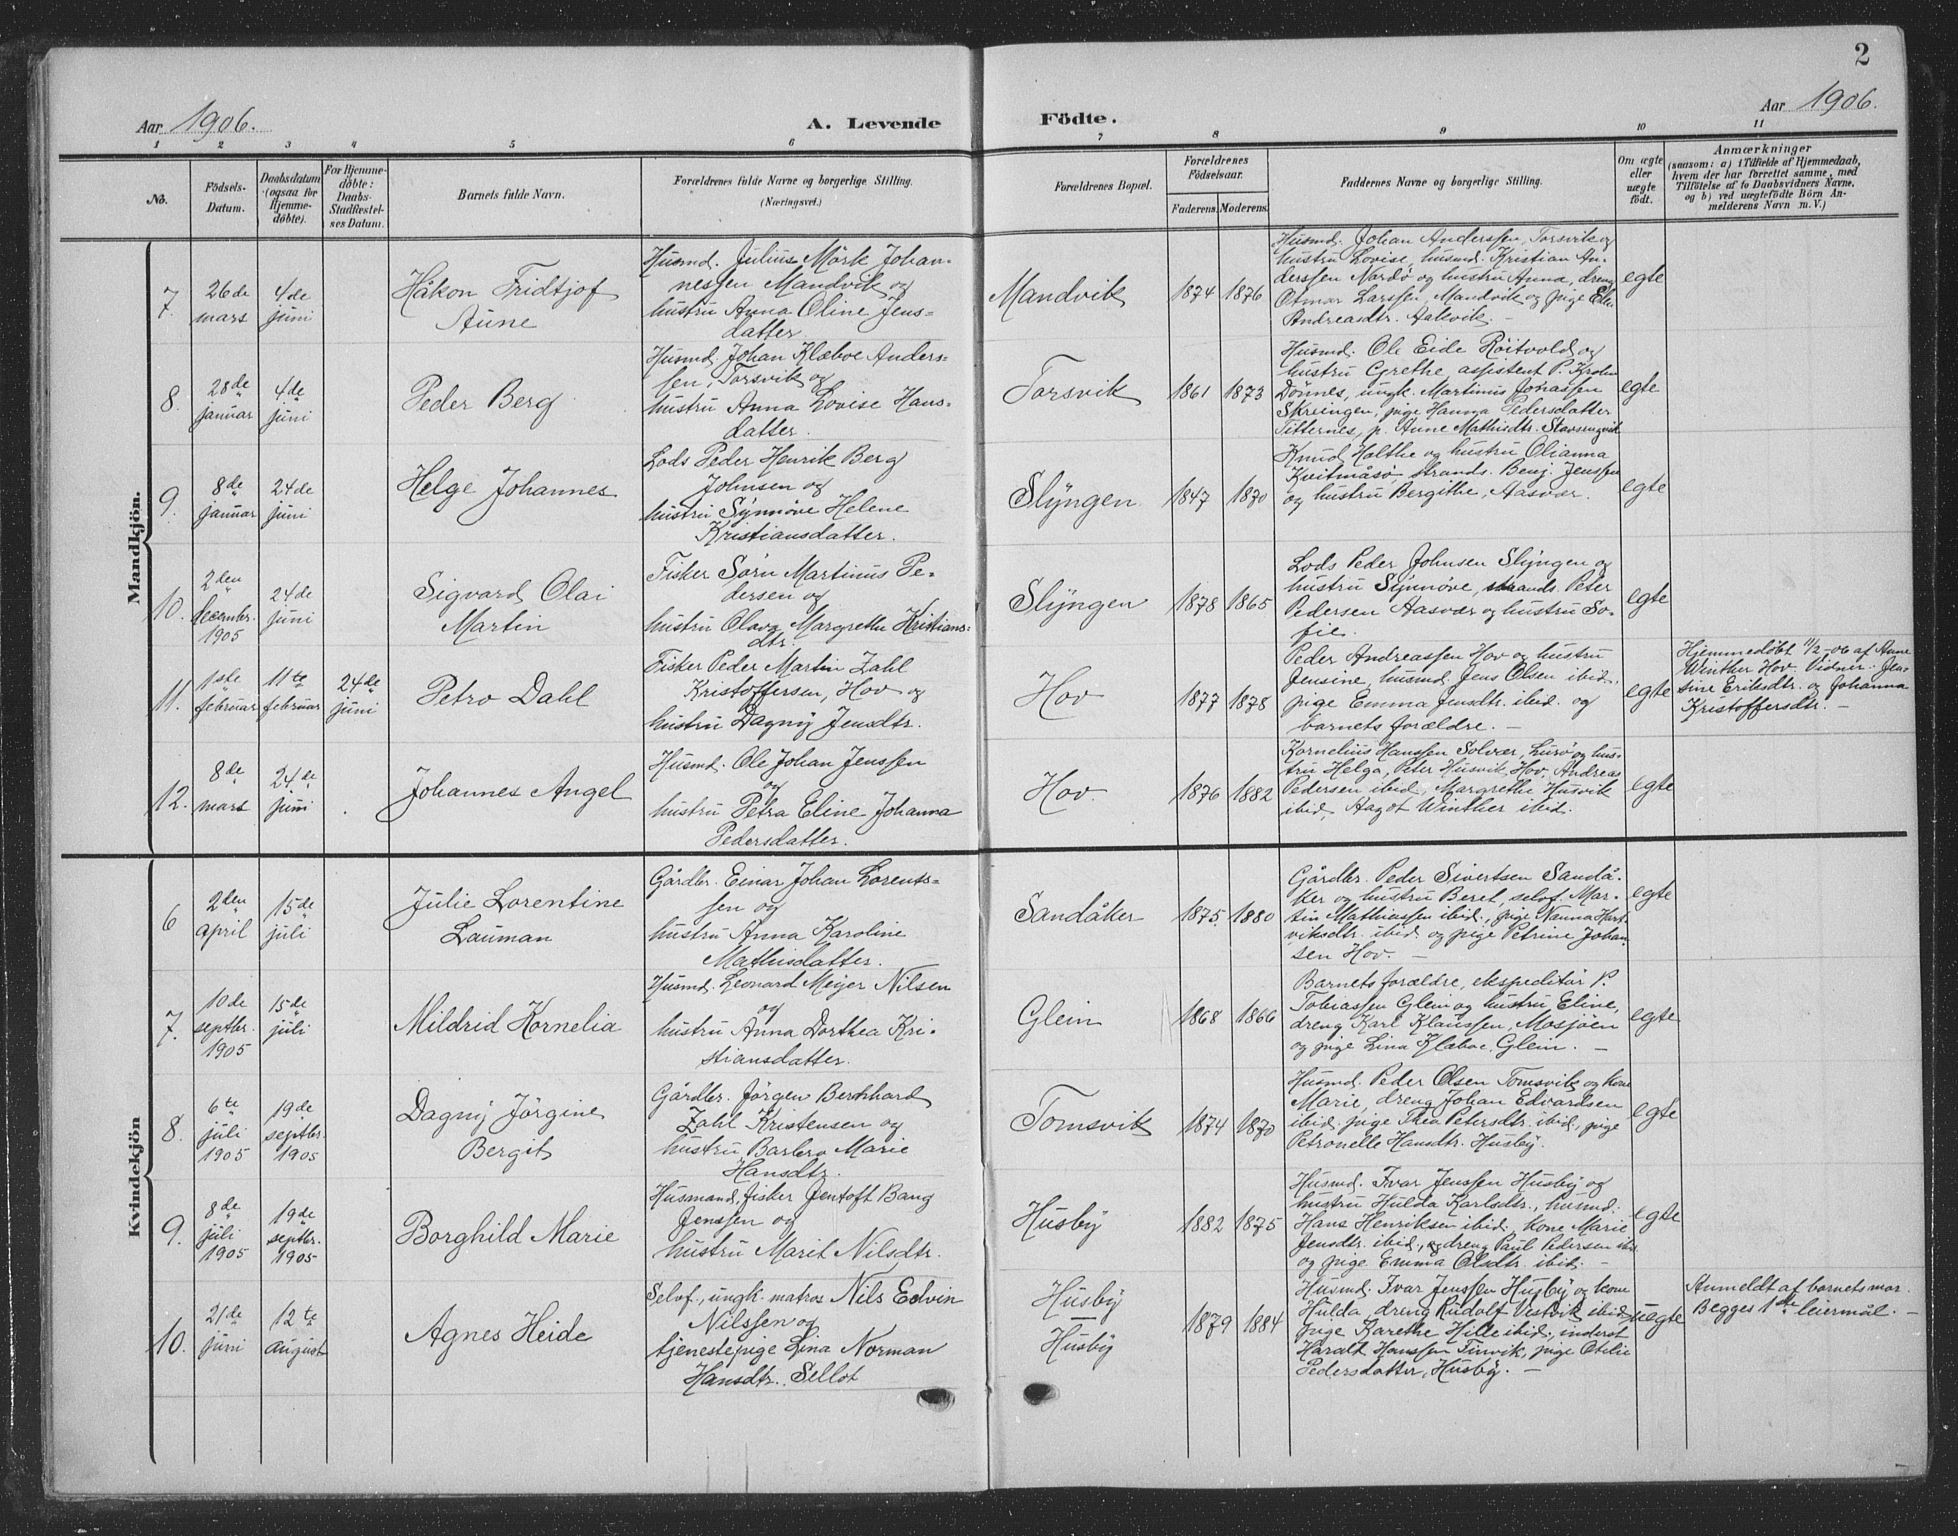 2
Aar 1906.
A. Levende
Födte.
Aar 1906.
1 2 3 4 5 6 7 8 9 10 11
No.
Födsels-
Datum.
Daabsdatum
(ogsaa for
Hjemme-
döbte).
For Hjemme-
døbte:
Daabs-
Stadfæstel-
ses Datum.
Barnets fulde Navn.
Forældrenes fulde Navne og borgerlige Stilling.
(Næringsvei.)
Forældrenes Bopæl.
Forældrenes
Födselsaar.
Faderens. Moderens.
Faddernes Navne og borgerlige Stilling.
Om ægte
eller
uægte
födt.
Anmærkninger
(saasom: a) i Tilfælde af Hjemmedaab,
hvem der har forrettet samme, med
Tilföielse af to Daabsvidners Navne,
og b) ved uægtefödte Börn An-
melderens Navn m. V.)
Mandkjön.
7.
26de
mars
4de
juni
Håkon Fridtjof
Aune
Husmd. Julius Mörk Johan-
nessen Mandvik og
hustru Anna Oline Jens-
datter
Mandvik
1874 1876
Husmd. Johan Anderssen, Torsvik og
hustru Lovise, husmd. Kristian An-
derssen Nordö og hustru Anna, dreng
Otmar Larssen, Mandvik og pige
Andreasdtr. Aakvik. –
egte
8.
28de
januar
4de
juni
Peder Berg
Husmd. Johan Klæboe Anders-
sen, Torsvik og
hustru Anna Lovise Hans-
datter.
Torsvik
1861 1873
Husmd. Ole Eide Röitvold og
hustru Grethe, assistent P. Krohn
Dönnes, ungk. Martinus Johassen
Skreingen, pige Hanna Pedersdatter
Titternes, p. Anne Mathisdtr.
egte
9.
8de
januar
24de
juni
Helge Johannes
Lods Peder Henrik Berg
Johnsen og
hustru Synnöve Helene
Kristiansdatter.
Slÿngen.
1847 1870
Knud Holthe og hustru Olianna
Kvitmåsö, strands. Benj. Jenssen
og hustru Bergithe, Aasvær.
egte
10.
2den
decembr.
1905
24de
juni
Sigvard Olai
Martin
Fisker Sörn Martinus Pe-
dersen og
hustru Olava Margrethe Kristians-
dtr.
Slÿngen
1878 1865
Lods Peder Johnsen Slÿngen og
hustru Synnöve, strands. Peter
Pedersen Aasvær og hustru So-
fie.
egte
11.
1ste
februar
11te
februar
24de
juni
Petro Dahl
Fisker Peder Martin Zahl
Kristoffersen, Hov og
hustru Dagnÿ Jensdtr.
Hov
1877 1878
Peder Andreassen Hov og hustru
Jensine, husmd. Jens Olsen ibid.
pige Emma Jensdtr. ibid. og
barnets forældre. –
egte
Hjemmedöbt 11/2-06 af Anne
Winther Hov. Vidner: Jen-
sine Eriksdtr. og Johanna
Kristoffersdtr. –
12.
8de
mars
24de
juni
Johannes Angel
Husmd. Ole Johan Jenssen
og
hustru Petra Eline Johanna
Pedersdatter.
Hov.
1876 1882
Kornelius Hanssen Solvær, Lurö og hus-
tru Helga, Peter Husvik, Hov, Andreas
Pedersen ibid, Margrethe Husvik
ibid, Aagot Winther ibid.
egte
Kvindekjön
6
2den
april
15de
juli
Julie Lorentine
Lauman
Gårdbr. Einar Johan Lorents-
sen og
hustru Anna Karoline
Mathisdatter.
Sandåker
1875. 1880
Gårdbr. Peder Sivertsen Sandå-
ker og hustru Beret, selvf. Mar-
tin Mathiassen ibid., pige Nanna Hart-
viksdtr. ibid. og pige Petrine Johan-
sen Hov. –
egte
7.
10de
septbr.
1905
15de
juli
Mildrid Kornelia
Husmd. Leonard Meÿer Nilsen
og
hustru Anna Dorthea Kri-
stiansdatter.
Glein
1868 1866
Barnets forældre, ekspeditör P.
Tobiassen Glein og hustru Eline,
dreng Karl Klaussen, Mosjöen
og pige Lina Klæboe. Glein. –
egte
8.
6te
juli
1905
19de
septbr.
1905
Dagnÿ Jörgine
Bergit
Gårdbr. Jörgen Bernhard
Zahl Kristensen og
hustru Barbro Marie
Hansdtr.
Tomsvik
1874 1870
Husmd. Peder Olsen Tomsvik og kone
Marie, dreng Johan Edvardsen
ibid. pige Thea Petersdtr. ibid, pige
Petronelle Hansdtr. Husbÿ.
egte
9.
8de
juli
1905
19de
septbr.
1905
Borghild Marie
Husmand, fisker Jentoft Bang
Jenssen og
hustru Marit Nilsdtr.
Husbÿ
1882 1875
Husmd. Ivar Jenssen Husbÿ og
hustru Hulda Karlsdtr., husmd.
Hans Henriksen ibid., kone Marie
Jensdtr. ibid., dreng Paul Pedersen ibid
og pige Emma Olsdtr. ibid. –
egte
10.
21de
juni
12te
august
Agnes Heide
Selvf., ungk. matros Nils Edvin
Nilssen og
tjenestepige Lina Norman
Hansdtr. Sellot
Husbÿ
Husbÿ
1879 1884
Husmd. Ivar Jenssen Husbÿ og kone
Hulda, dreng Rudolf Vestvik ibid
pige Karethe Hille ibid., inderst
Haralt Hanssen Finvik, pige Otelie
Pedersdatter, Husbÿ. –
uegte
Anmeldt af barnets mor.
Begges 1ste leiermål. –